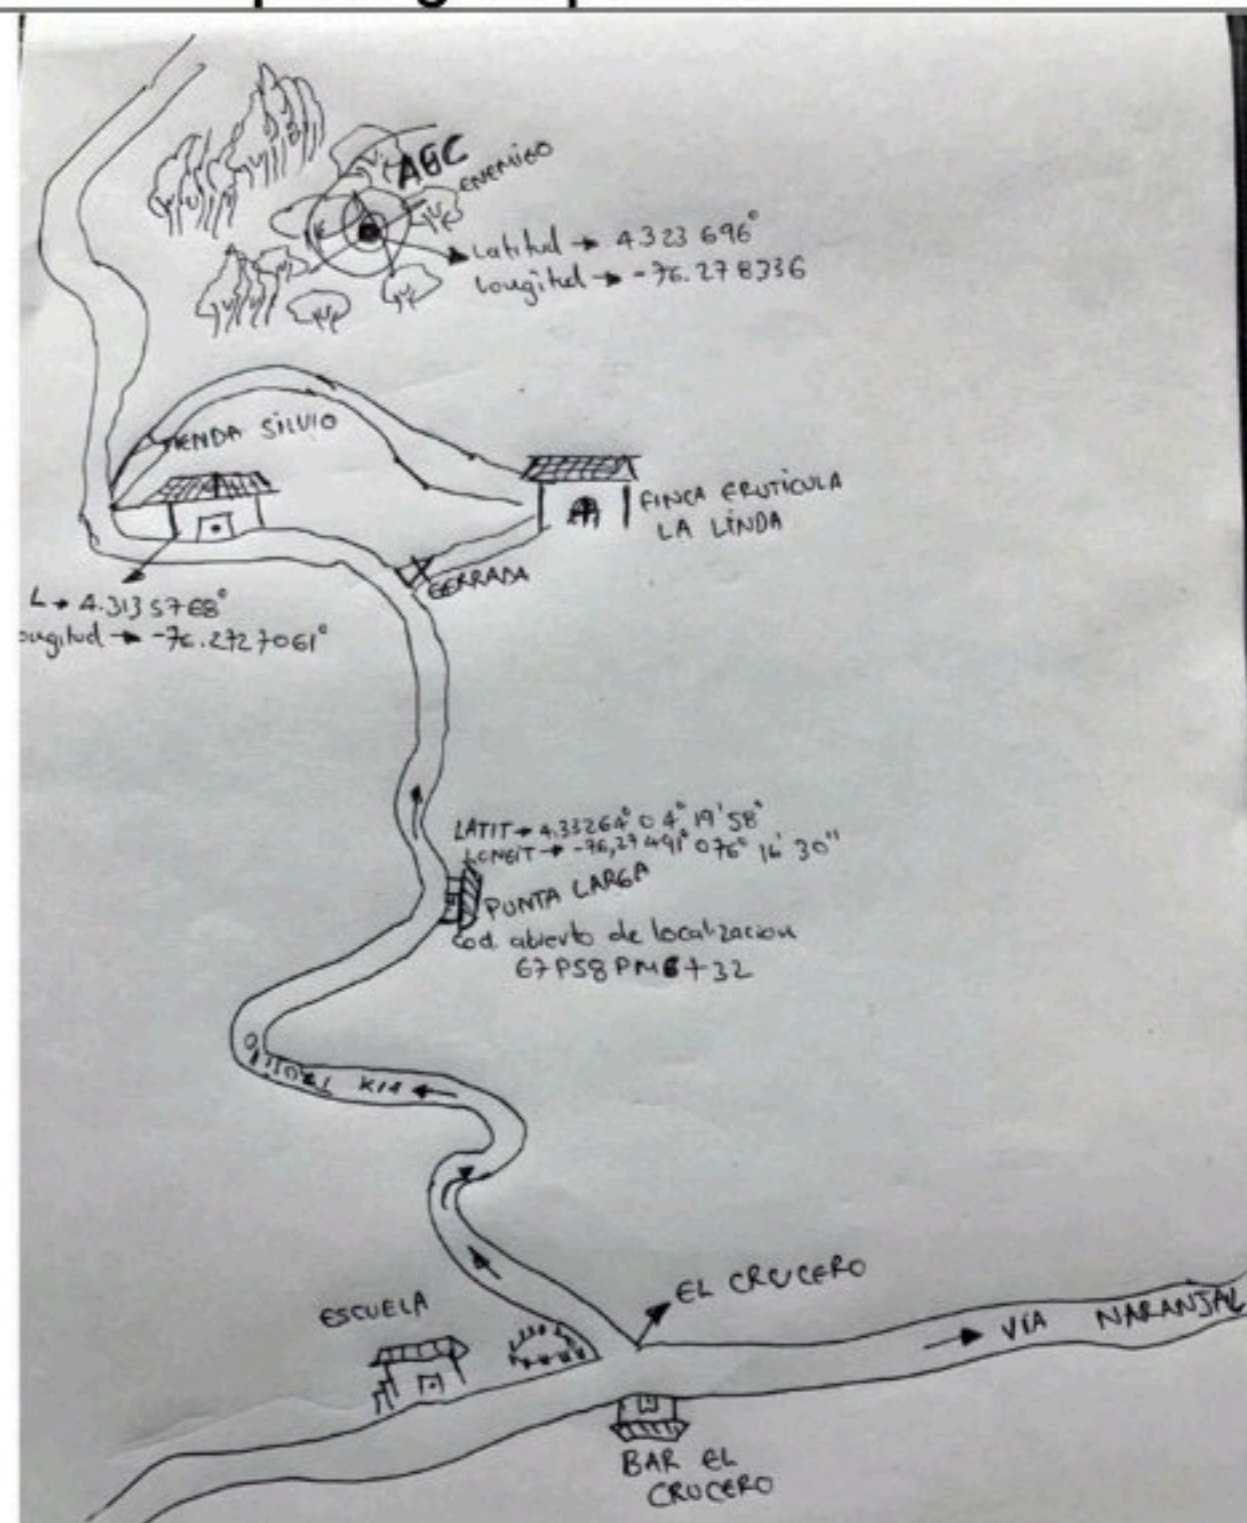 ABC
ENEMIGO
Latitud → 4.323 696°
Longitud → -76.278336
TIENDA SILVIO
FINCA FRUTICULA
LA LINDA
CERRADA
L → 4.3135768°
ongitud → -76.2727061°
LATIT → 4.33264° O 4° 19' 58"
LONGIT → -76,27491° 076° 16' 30"
PUNTA LARGA
Cod. abierto de localizacion
67P58PM6+32
EL CRUCERO
ESCUELA
VIA NARANJAL
BAR EL
CRUCERO